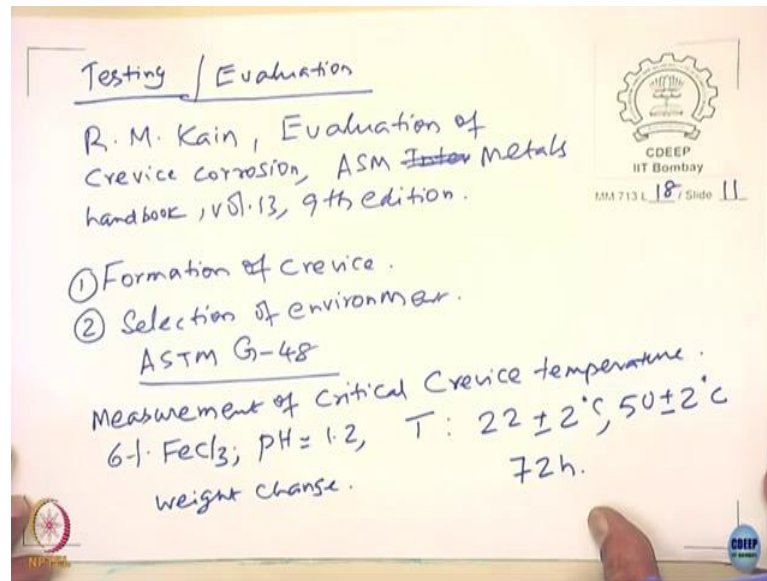 Testing / Evaluation
R. M. Kain, Evaluation of
Crevice corrosion, ASM Metals
handbook, vol. 13, 9th edition.
CDEEP
IIT Bombay
MM 713 L 18 / Slide 11
① Formation of Crevice.
② Selection of environment.
ASTM G-48
Measurement of Critical Crevice temperature.
6-1. FeCl3; pH = 1.2, T: 22 ± 2°C, 50 ± 2°C
weight change. 72h.
NPTEL
CDEEP